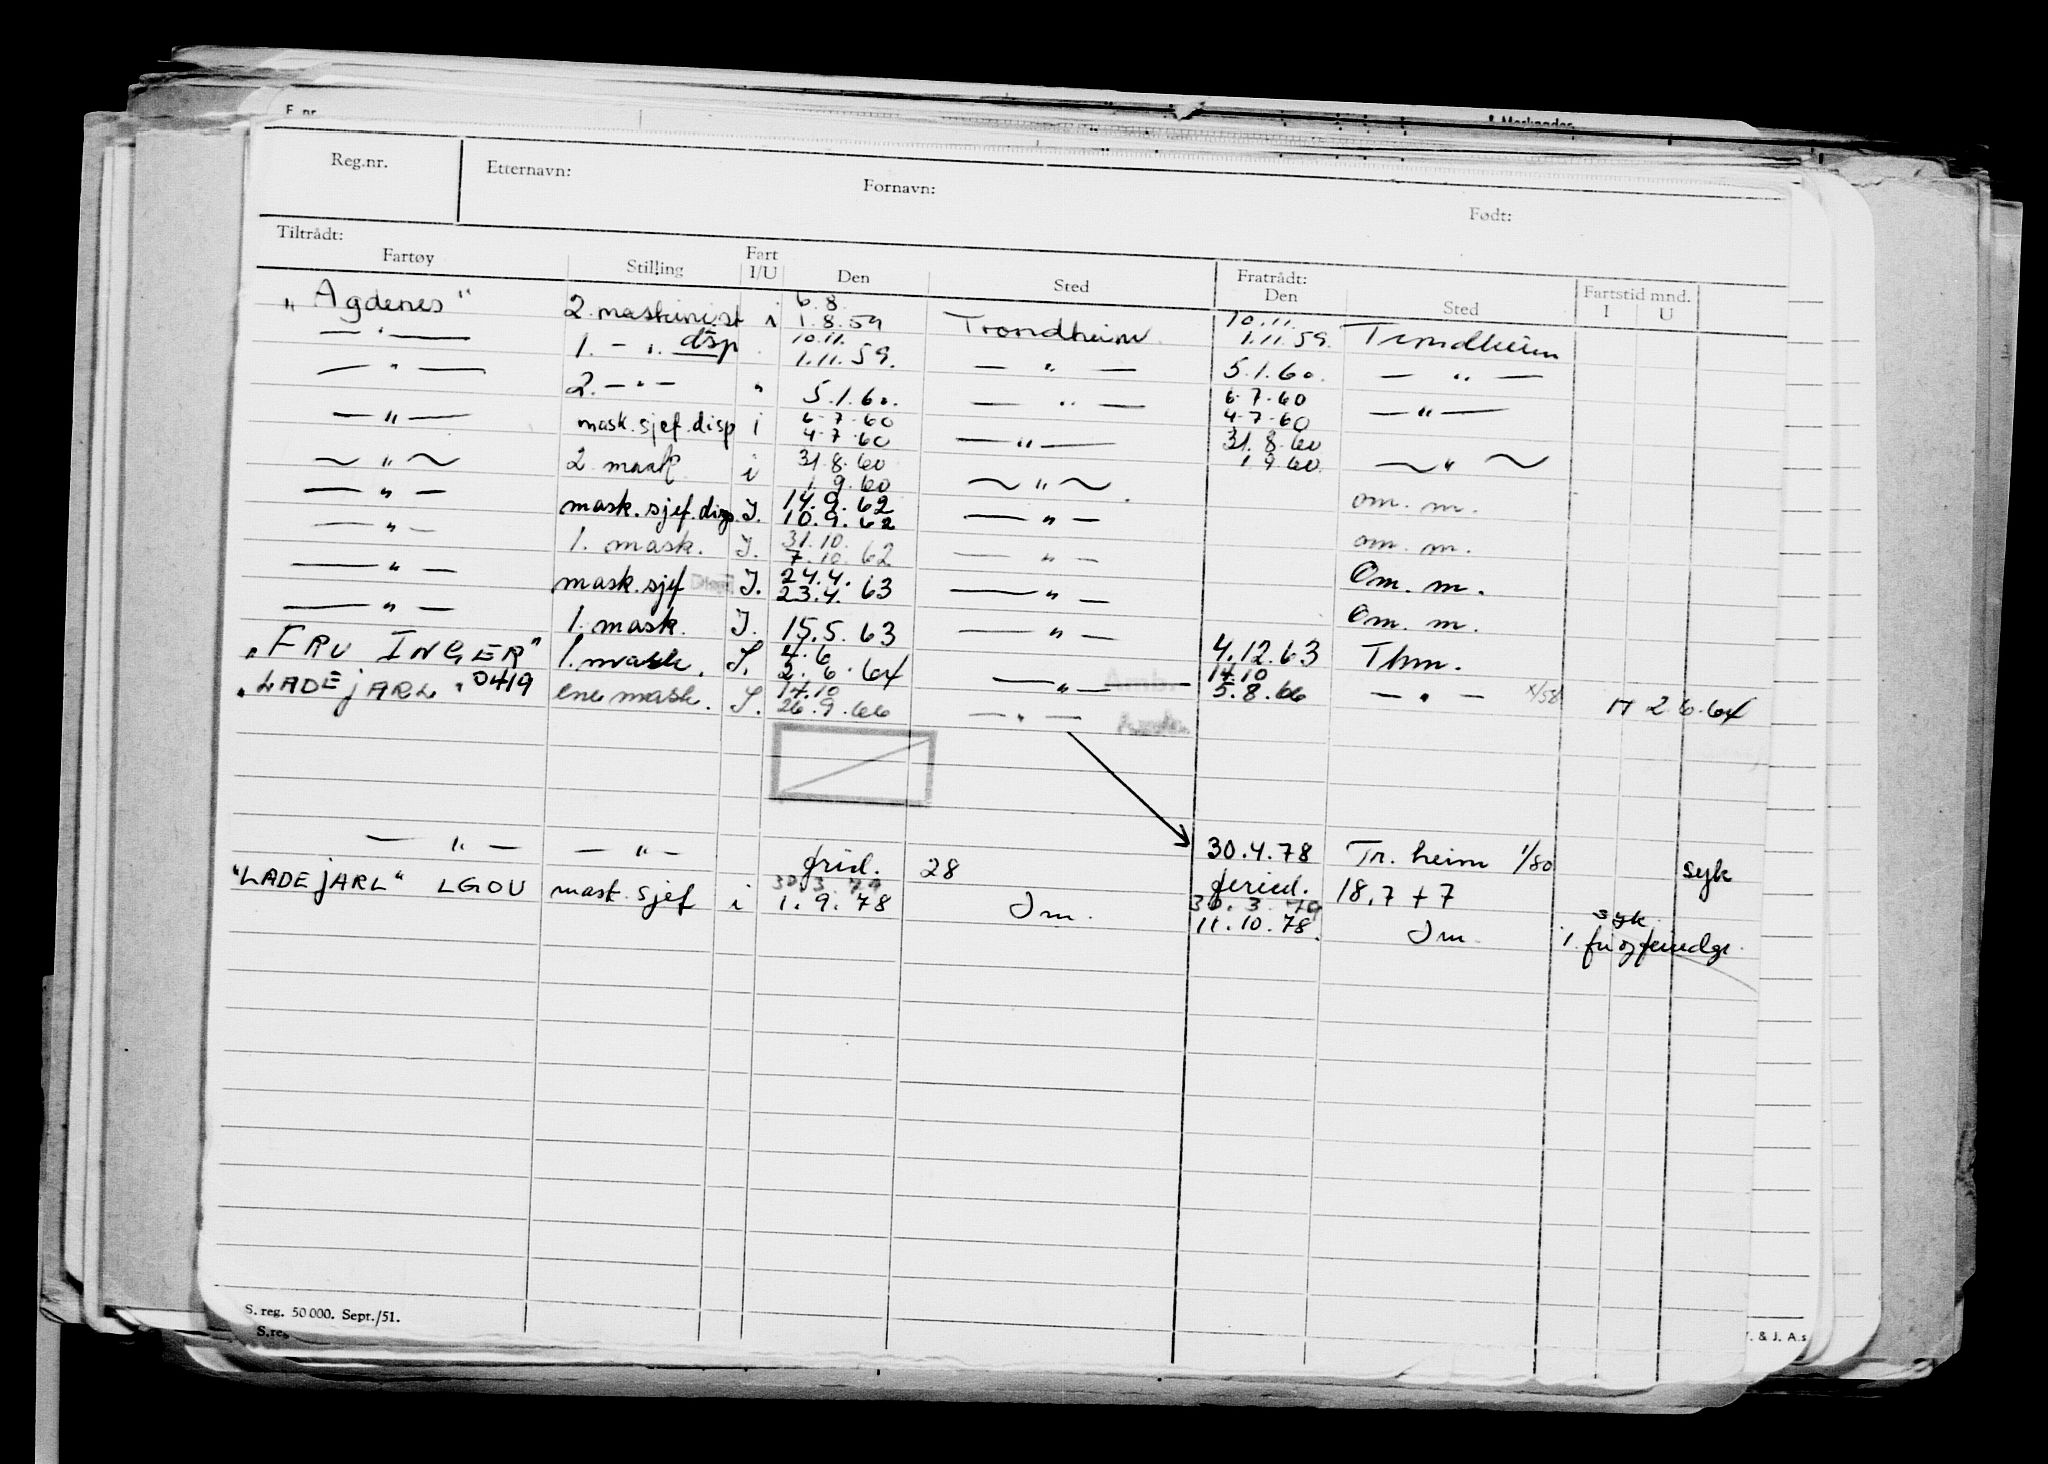 F. nr. & Merknader
Reg.nr. Etternavn: Fornavn: Født:
Tiltrådt: Fartøy Stilling Fart I/U Den Sted Fratrådt: Den Sted Fartstid mnd. I U
„Agdenes" 2. maskinist i 6.8. 1.8.59 Trondheim 10.11. 1.11.59. Trondheim
— " — 1. — " . disp 10.11. 1.11.59. — " — 5.1.60. — " —
— " — 2. — " — " 5.1.60. — " — 6.7.60 4.7.60 — " —
— " — mask.sjef.disp i 6.7.60 4.7.60 — " — 31.8.60 1.9.60. — " —
— " — 2. mask i 31.8.60 1.9.60 — " — om. m.
— " — mask.sjef.disp. I. 14.9.62 10.9.62 — " — om. m.
— " — 1. mask. I. 31.10. 7.10.62 — " — Om. m.
— " — mask.sjef Disp I. 24.4. 23.4.63 — " — Om. m.
— " — 1. mask. I. 15.5.63 — " — 4.12.63 Thm.
„FRU INGER" 1. mask. I. 4.6 2.6.64 — " — 14.10 5.8.66 — " — X/58 H 2.6.64
„LADEJARL" 0419 ene mask. I. 14.10 26.9.66 — " —
— " — — " — 30.4.78 Tr.heim 1/80 syk
frid. 28 feried. 18,7 + 7
"LADEJARL" LGOU mask.sjef i 30.3.79 1.9.78 Im. 30.3.79 11.10.78. Im. syk
i. fri og feriedgr.
S. reg. 50 000. Sept./51.
S.reg
. & J. A.s